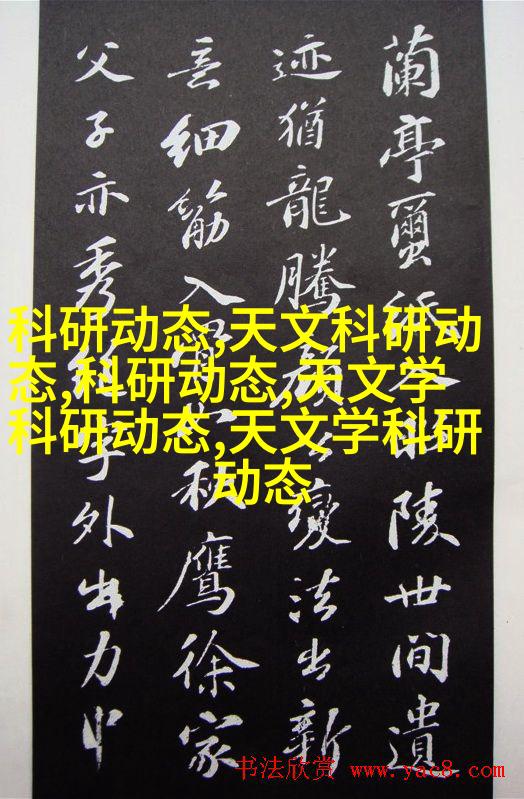 蘭亭繭紙入昭陵世間遺
迹猶龍騰顏公變法出新
意細筋入骨如秋鷹徐家
父子亦秀絕字外出力中
科研动态,天文科研动
态,科研动态,天文学
科研动态,天文学科研
动态
书法欣赏 www.yac8.com